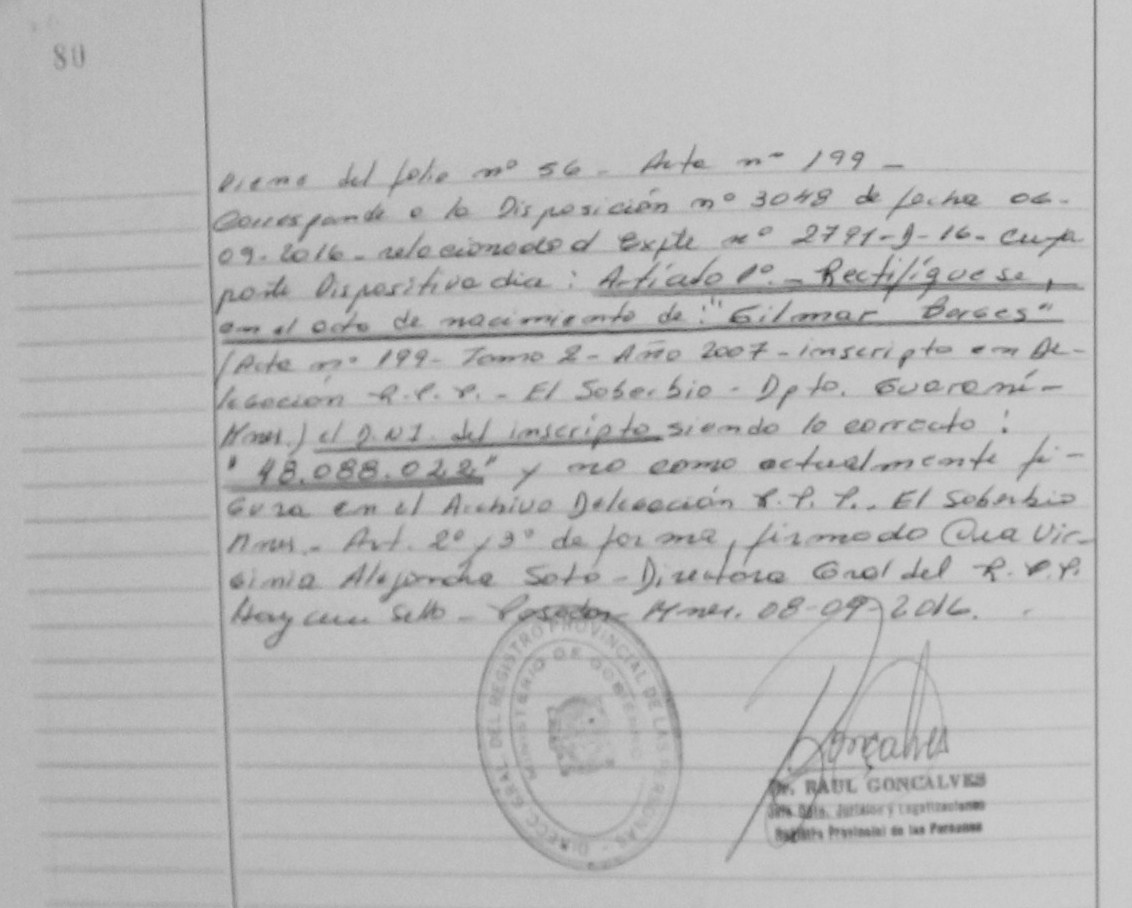 80
Viene del folio nº 56 - Acta nº 199 -
Corresponde a la Disposición nº 3048 de fecha 06-
09-2016 - relacionado al Expte nº 2791-J-16 - cuya
parte Dispositiva dice: Artículo 1º - Rectifíquese,
en el acta de nacimiento de: "Gilmar Borges"
(Acta nº 199 - Tomo 2 - Año 2007 - inscripto en De-
legación R.P.P. - El Soberbio - Dpto. Guaraní -
Mnes.) el D.N.I. del inscripto siendo lo correcto:
"48.088.022" y no como actualmente fi-
gura en el Archivo Delegación R.P.P. - El Soberbio
Mnes. - Art. 2º y 3º de forma, firmado Vir-
ginia Alejandra Soto - Directora Gral del R.P.P.
Hay un Sello - Posadas Mnes. 08-09-2016.
DIRECC. GRAL. DEL REGISTRO PROVINCIAL DE LAS PERSONAS
MINISTERIO DE GOBIERNO
Gonçalves
Dr. RAUL GONCALVES
Jefe Dpto. Jurídico y Legalizaciones
Registro Provincial de las Personas